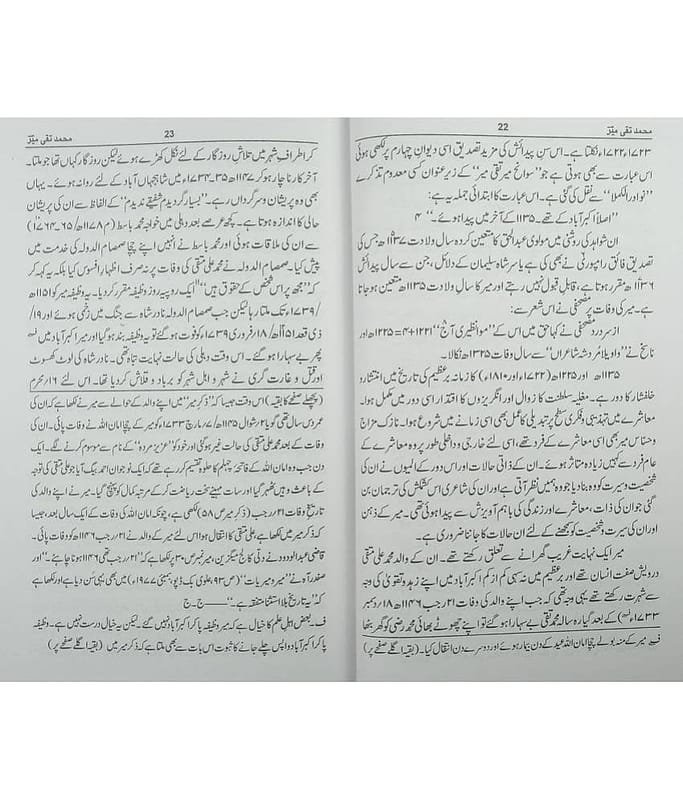 محمد تقی میرؔ
22
۱۷۲۳ء۔۱۷۲۲ء نکلتا ہے۔ اس سن پیدائش کی مزید تصدیق اسی دیوان چہارم پر لکھی ہوئی
اس عبارت سے بھی ہوتی ہے جو ’’سوانح میر تقی میر‘‘ کے زیر عنوان کسی معدوم تذکرے
’’نوادر الکملا‘‘ سے نقل کی گئی ہے۔ اس عبارت کا ابتدائی جملہ یہ ہے:
’’اصلاً اکبر آباد کے تھے۔ ۱۱۳۵ کے آخر میں پیدا ہوئے۔‘‘ ۴
ان شواہد کی روشنی میں مولوی عبدالحق کا متعین کردہ سال ولادت ۱۱۳۷ھ جس کی
تصدیق فائق رامپوری نے بھی کی ہے یا سر شاہ سلیمان کے دلائل، جن سے سال پیدائش
۱۱۳۶ھ مقرر ہوتا ہے، قابل قبول نہیں رہتے اور میر کا سال ولادت ۱۱۳۵ھ متعین ہو جاتا
ہے۔ میر کی وفات پر مصحفی نے اس شعر سے:
از سر درد مصحفی نے کہا حق میں اس کے ’’موا نظیری آج‘‘ ۱۲۲۱+۴=۱۲۲۵ھ اور
ناسخ نے ’’واویلا مردشہ شاعراں‘‘ سے سال وفات ۱۲۲۵ھ نکالا۔
۱۱۳۵ھ اور ۱۲۲۵ھ (۱۷۲۲ء اور ۱۸۱۰ء) کا زمانہ برعظیم کی تاریخ میں انتشار و
خلفشار کا دور ہے۔ مغلیہ سلطنت کا زوال اور انگریزوں کا اقتدار اسی دور میں مکمل ہوا۔
معاشرے میں تہذیبی و فکری سطح پر تبدیلی کا عمل بھی اسی زمانے میں شروع ہوا۔ نازک مزاج
و حساس میر بھی اسی معاشرے کے فرد تھے، اسی لئے خارجی و داخلی طور پر وہ معاشرے کے
عام فرد سے کہیں زیادہ متاثر ہوئے۔ ان کے ذاتی حالات اور اس دور کے المیوں نے ان کی
شخصیت و سیرت کو وہ بنا دیا جو وہ ہمیں نظر آتی ہے اور ان کی شاعری اس کشمکش کی ترجمان بن
گئی جو ان کی ذات، معاشرے اور زندگی کی باہم آویزش سے پیدا ہوئی تھی۔ میر کے ذہن
اور ان کی سیرت و شخصیت کو سمجھنے کے لئے ان حالات کا جاننا ضروری ہے۔
میر ایک نہایت غریب گھرانے سے تعلق رکھتے تھے۔ ان کے والد محمد علی متقی
درویش صفت انسان تھے اور برعظیم میں نہ سہی کم از کم اکبر آباد میں اپنے زہد و تقویٰ کی وجہ
سے شہرت رکھتے تھے یہی وجہ تھی کہ جب اپنے والد کی وفات ۲۱ رجب ۱۱۴۶ھ ۱۸ دسمبر
۱۷۳۳ء) کے بعد گیارہ سالہ محمد تقی بے سہارا ہو گئے تو اپنے چھوٹے بھائی محمد رضی کو گھر بٹھا
ف میر کے منہ بولے چچا امان اللہ عید کے دن بیمار ہوئے اور دوسرے دن انتقال کیا۔ (بقیہ اگلے صفحے پر)
محمد تقی میرؔ
23
کر اطراف شہر میں تلاش روزگار کے لئے نکل کھڑے ہوئے لیکن روزگار کہاں تھا جو ملتا۔
آخر کار ناچار ہو کر ۱۱۴۷ھ ۳۵۔۱۷۳۴ء میں شاہجہاں آباد کے لئے روانہ ہوئے۔ یہاں
بھی وہ پریشان و سرگرداں رہے۔ ’’بسیار گردیدم شفیقے ندیدم‘‘ کے الفاظ سے ان کی پریشان
حالی کا اندازہ ہوتا ہے۔ کچھ عرصے بعد دہلی میں خواجہ محمد باسط (م ۱۱۷۸ھ/۶۵۔۱۷۶۴ء)
سے ان کی ملاقات ہوئی اور محمد باسط نے انہیں اپنے چچا صمصام الدولہ کی خدمت میں
پیش کیا۔ صمصام الدولہ نے محمد علی متقی کی وفات پر نہ صرف اظہار افسوس کیا بلکہ یہ کہہ کر
کہ ’’مجھ پر اس شخص کے حقوق ہیں‘‘ ایک روپیہ روز وظیفہ مقرر کر دیا۔ یہ وظیفہ میر کو ۱۱۵۱ھ
/۱۷۳۹ء تک ملتا رہا لیکن جب صمصام الدولہ نادر شاہ سے جنگ میں زخمی ہوئے اور ۱۹/
ذی قعدہ ۱۱۵۱ھ/۱۸ فروری ۱۷۳۹ء کو فوت ہو گئے تو یہ وظیفہ بند ہو گیا اور میر اکبر آباد میں
پھر بے سہارا ہو گئے۔ اس وقت دہلی کی حالت نہایت تباہ تھی۔ نادر شاہ کی لوٹ کھسوٹ
اور قتل و غارت گری نے شہر و اہل شہر کو برباد و تلاش کر دیا تھا۔ اس لئے ۱۶ محرم
(پچھلے صفحے کا بقیہ) اس وقت جیسا کہ ’’ذکر میر‘‘ میں اپنے والد کے حوالے سے میر نے لکھا ہے کہ ان کی
عمر دس سال تھی گویا ۲ شوال ۱۱۴۵ھ/۷ مارچ ۱۷۳۳ء کو میر کے چچا امان اللہ نے وفات پائی۔ ان کی
وفات کے بعد محمد علی متقی کی حالت غیر ہو گئی اور خود کو ’’عزیز مردہ‘‘ کے نام سے موسوم کرنے لگے۔ ایک
دن جب وہ امان اللہ کے فاتحۂ چہلم کا حلوہ تقسیم کر رہے تھے کہ ایک نوجوان احمد بیگ آیا جو علی متقی کی توجہ
کے باعث وہیں ٹھہر گیا اور سات مہینے سخت ریاضت کر کے مرتبہ کمال کو پہنچ گیا۔ میر نے اپنے والد کی
تاریخ وفات ۲۱ رجب (ذکر میر ص ۵۸) لکھی ہے، چونکہ امان اللہ کی وفات کے ایک سال بعد، جیسا
کہ ذکر میر میں لکھا ہے علی متقی کا انتقال ہوا اس لئے میر کے والد نے ۲۱ رجب ۱۱۴۶ھ کو وفات پائی۔
قاضی عبدالودود نے دلی کالج میگزین، میر نمبر ص ۳۰ پر لکھا ہے کہ ’’۲۱ رجب تھی ۱۱۴۶ھ ہونا چاہئے۔‘‘ اور
صفدر آہ نے ’’میر و میریات‘‘ (ص ۹۳، علوی بک ڈپو، بمبئی ۱۹۷۷ء) میں بھی یہی سن دیا ہے اور لکھا ہے
کہ ’’یہ تاریخ بلا استثنا متفقہ ہے۔‘‘ —— ج۔ج
ف۔ بعض اہل علم کا خیال ہے کہ میر وظیفہ پا کر اکبر آباد نہیں گئے۔ لیکن یہ خیال درست نہیں ہے۔ وظیفہ
پا کر اکبر آباد واپس چلے جانے کا ثبوت اس بات سے بھی ملتا ہے کہ ذکر میر میں (بقیہ اگلے صفحے پر)